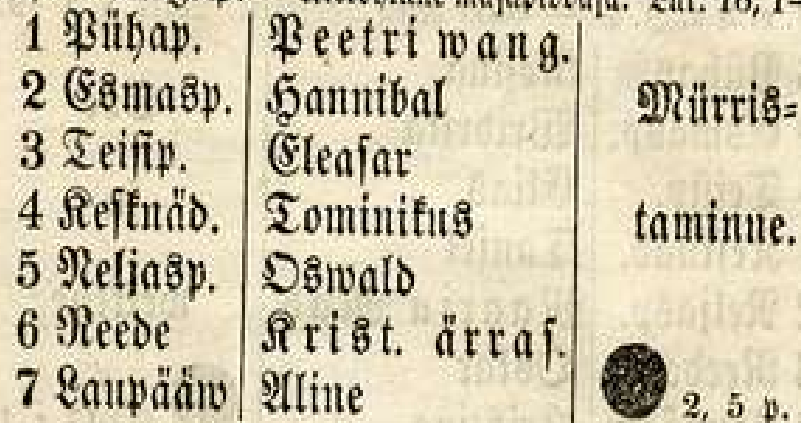 1 Pühap. Peetri wang.
2 Esmasp. Hannibal Mürris=
3 Teisip. Eleasar
4 Kesknäd. Tominikus taminne.
5 Neljasp. Oswald
6 Reede Krist. ärras.
7 Laupääw Aline 2, 5 p.